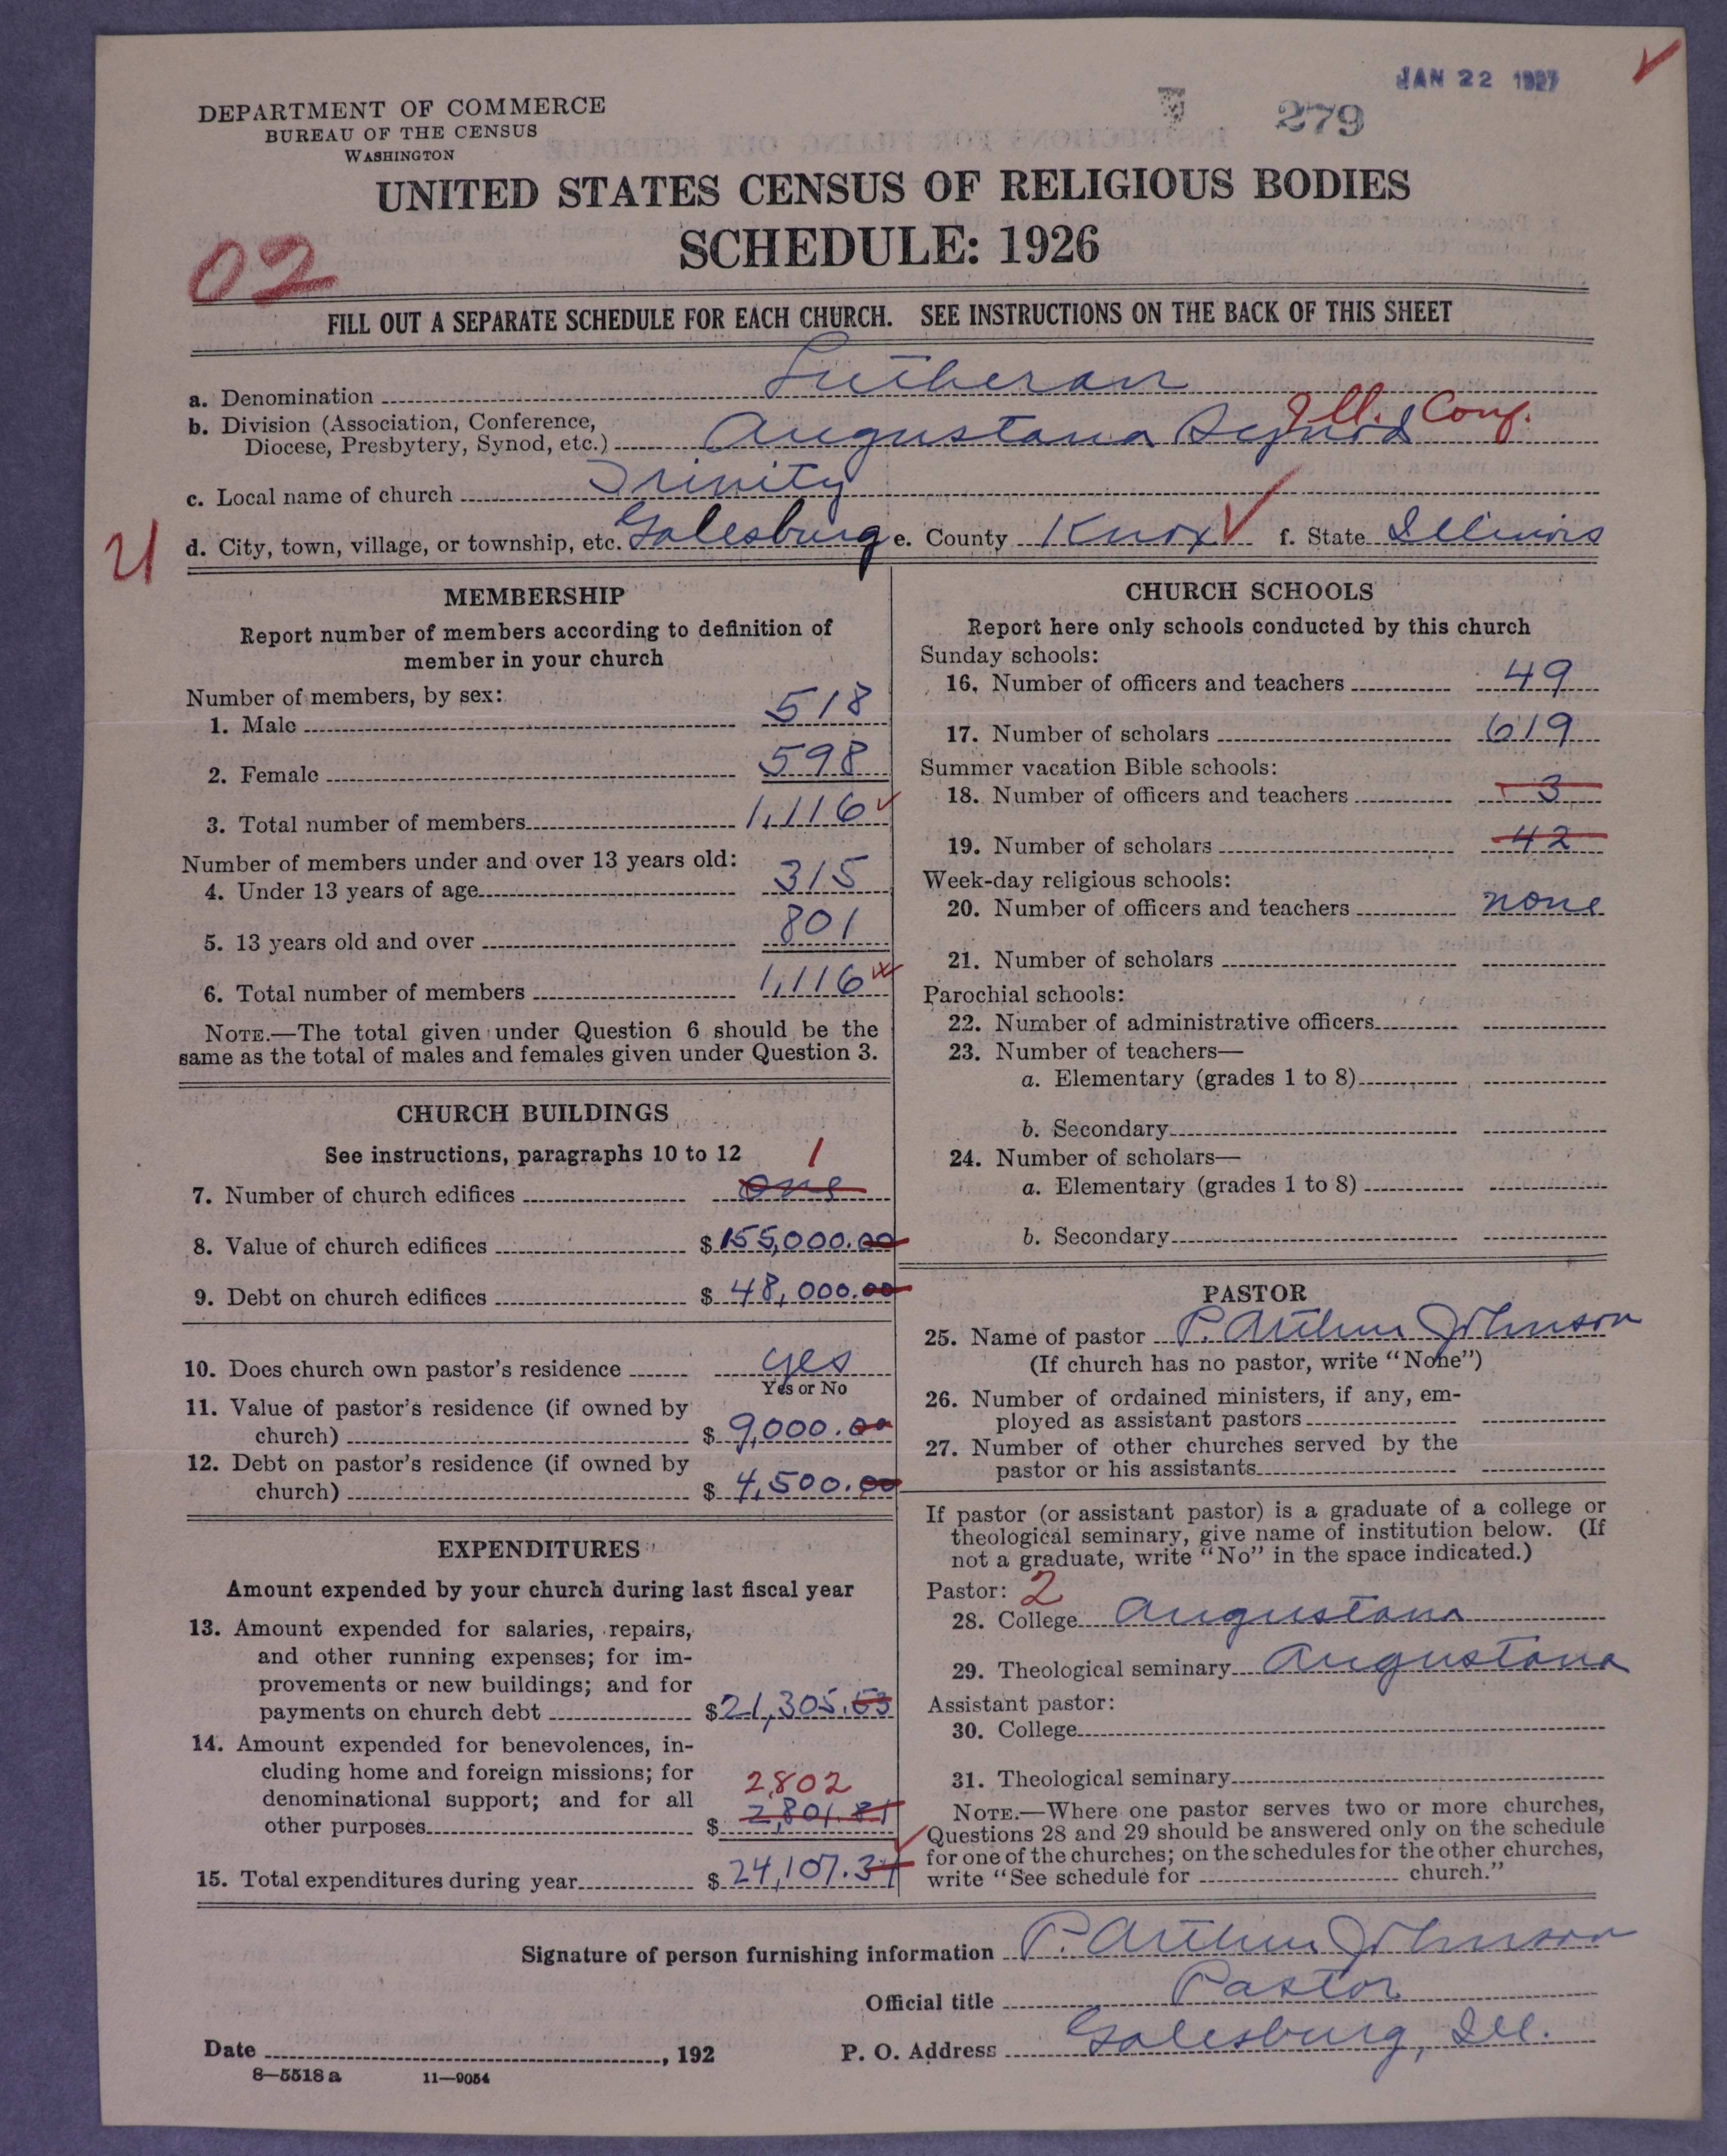 JAN 22 1927
279
DEPARTMENT OF COMMERCE
BUREAU OF THE CENSUS
WASHINGTON
UNITED STATES CENSUS OF RELIGIOUS BODIES
SCHEDULE: 1926
02
FILL OUT A SEPARATE SCHEDULE FOR EACH CHURCH. SEE INSTRUCTIONS ON THE BACK OF THIS SHEET
a. Denomination Lutheran
b. Division (Association, Conference,
Diocese, Presbytery, Synod, etc.) Augustana Synod Ill. Conf.
c. Local name of church Trinity
d. City, town, village, or township, etc. Galesburg e. County Knox f. State Illinois
MEMBERSHIP
Report number of members according to definition of
member in your church
Number of members, by sex:
1. Male 518
2. Female 598
3. Total number of members 1,116
Number of members under and over 13 years old:
4. Under 13 years of age 315
5. 13 years old and over 801
6. Total number of members 1,116
NOTE.—The total given under Question 6 should be the
same as the total of males and females given under Question 3.
CHURCH BUILDINGS
See instructions, paragraphs 10 to 12
1
7. Number of church edifices one
8. Value of church edifices $ 155,000.00
9. Debt on church edifices $ 48,000.00
10. Does church own pastor's residence yes
Yes or No
11. Value of pastor's residence (if owned by
church) $ 9,000.00
12. Debt on pastor's residence (if owned by
church) $ 4,500.00
EXPENDITURES
Amount expended by your church during last fiscal year
13. Amount expended for salaries, repairs,
and other running expenses; for im-
provements or new buildings; and for
payments on church debt $ 21,305.53
14. Amount expended for benevolences, in-
cluding home and foreign missions; for
denominational support; and for all
2,802
other purposes $ 2,801.81
15. Total expenditures during year $ 24,107.34
CHURCH SCHOOLS
Report here only schools conducted by this church
Sunday schools:
16. Number of officers and teachers 49
17. Number of scholars 619
Summer vacation Bible schools:
18. Number of officers and teachers 3
19. Number of scholars 42
Week-day religious schools:
20. Number of officers and teachers none
21. Number of scholars
Parochial schools:
22. Number of administrative officers
23. Number of teachers—
a. Elementary (grades 1 to 8)
b. Secondary
24. Number of scholars—
a. Elementary (grades 1 to 8)
b. Secondary
PASTOR
25. Name of pastor P. Arthur Johnson
(If church has no pastor, write "None")
26. Number of ordained ministers, if any, em-
ployed as assistant pastors
27. Number of other churches served by the
pastor or his assistants
If pastor (or assistant pastor) is a graduate of a college or
theological seminary, give name of institution below. (If
not a graduate, write "No" in the space indicated.)
Pastor: 2
28. College Augustana
29. Theological seminary Augustana
Assistant pastor:
30. College
31. Theological seminary
NOTE.—Where one pastor serves two or more churches,
Questions 28 and 29 should be answered only on the schedule
for one of the churches; on the schedules for the other churches,
write "See schedule for church."
Signature of person furnishing information P. Arthur Johnson
Official title Pastor
Date , 192
P. O. Address Galesburg, Ill.
8—5518 a 11—9054